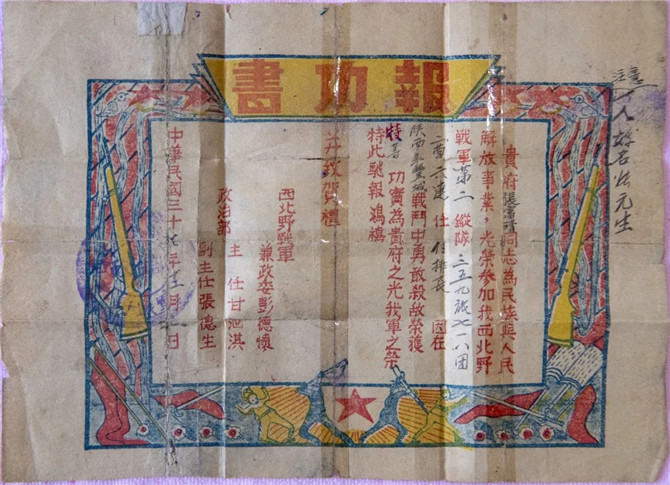 報功書
貴府張富清同志為民族與人民
解放事業，光榮參加我西北野
戰軍第二縱隊三五九旅七一八團
二营六連任付排長 因在
陝西永豐城戰鬥中勇敢殺敵榮獲
特等功實為貴府之光我軍之榮
特此馳報鴻禧
并致賀禮
西北野戰軍
兼政委彭德懷
政治部
主任甘泗淇
副主任張德生
中華民國三十七年十二月日
注意